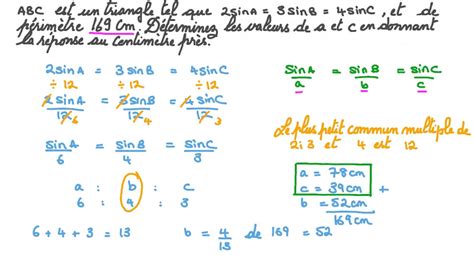 ABC est un triangle tel que 2sinA = 3sinB = 4sinC , et de
périmètre 169 cm. Déterminez les valeurs de a et c en donnant
la réponse au centimètre près.
2sinA = 3sinB = 4sinC
÷12 ÷12 ÷12
2sinA/12 6 = 3sinB/12 4 = 4sinC/12 3
sinA/6 = sinB/4 = sinC/3
a : b : c
6 : 4 : 3
6 + 4 + 3 = 13
b = 4/13 de 169 = 52
sinA/a = sinB/b = sinC/c
Le plus petit commun multiple de
2; 3 et 4 est 12
a = 78cm
c = 39cm +
b = 52cm
169cm